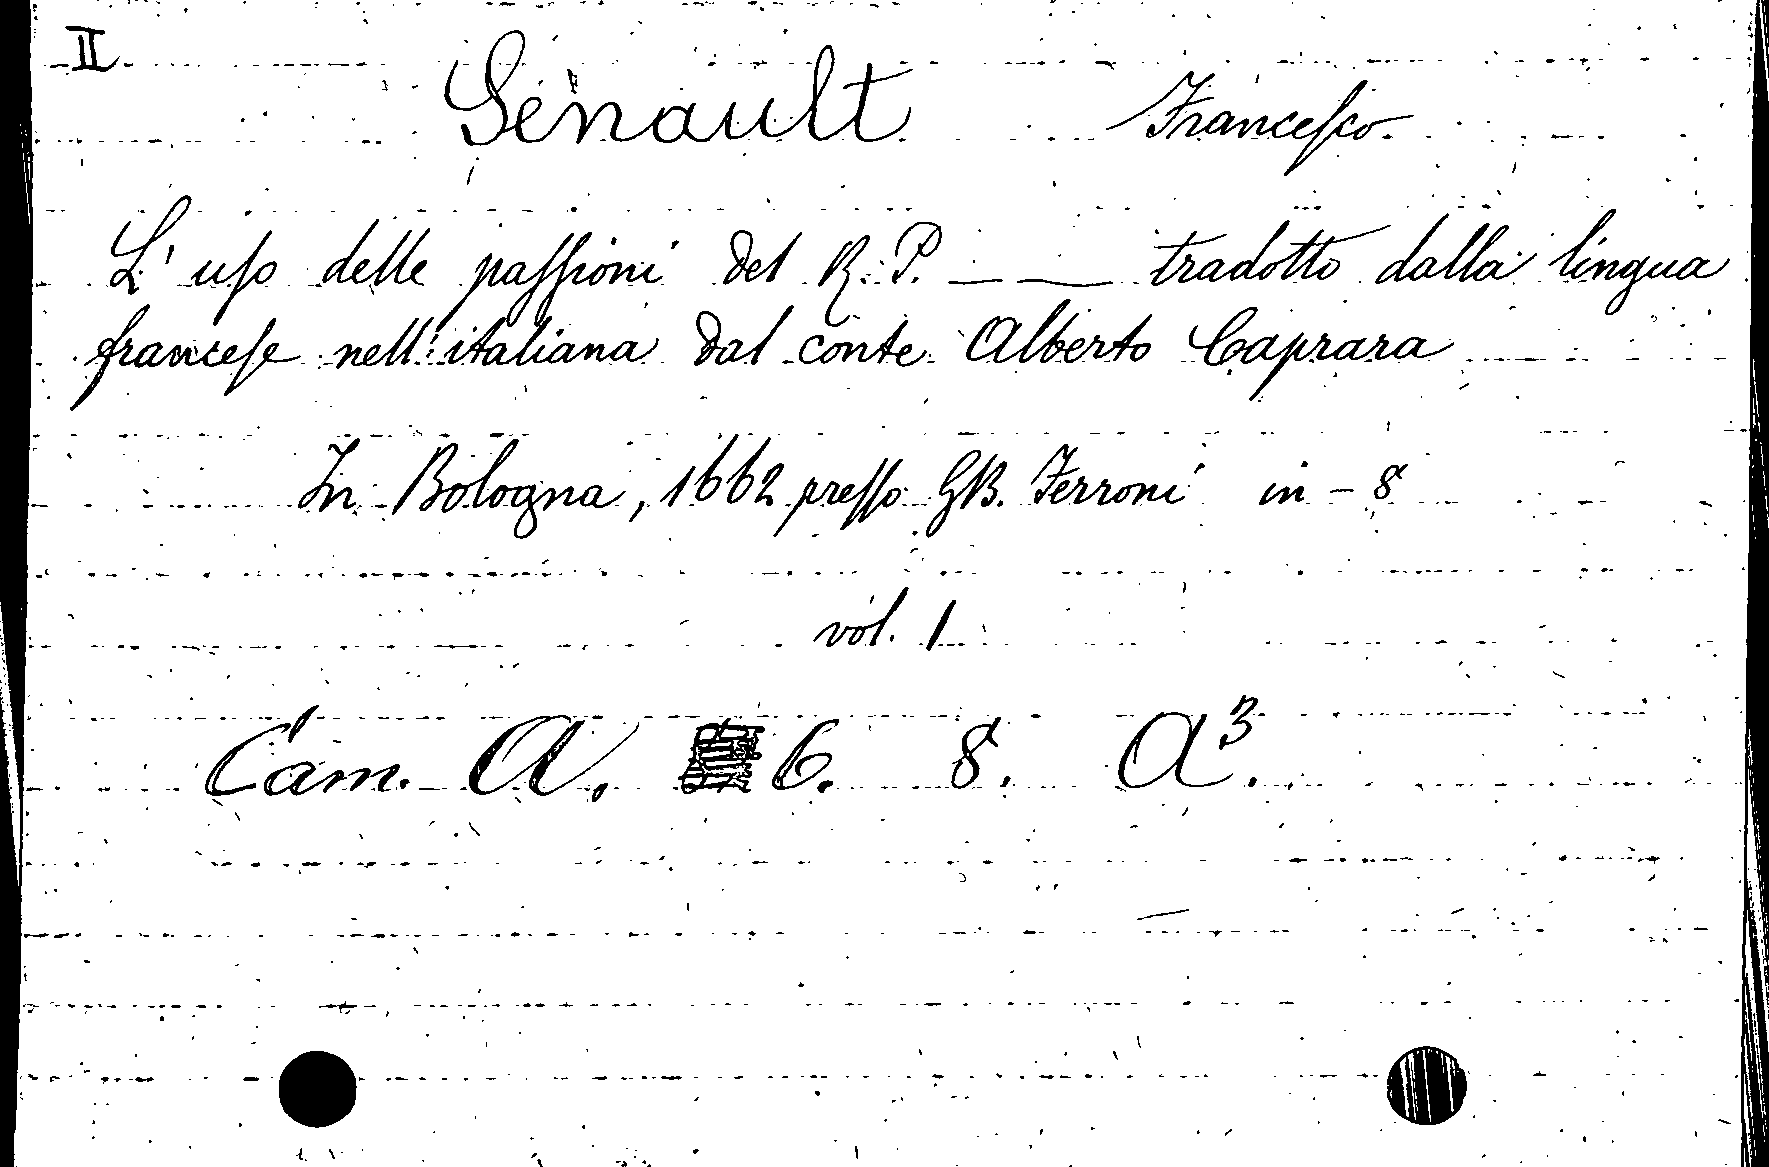 II
Senault Francesco.
L'uso delle passioni del R. P. — — tradotto dalla lingua
francese nell'italiana dal conte Alberto Caprara
In Bologna, 1662 presso GB. Ferroni in - 8
vol. 1
Cam. A. 6. 8. A³.